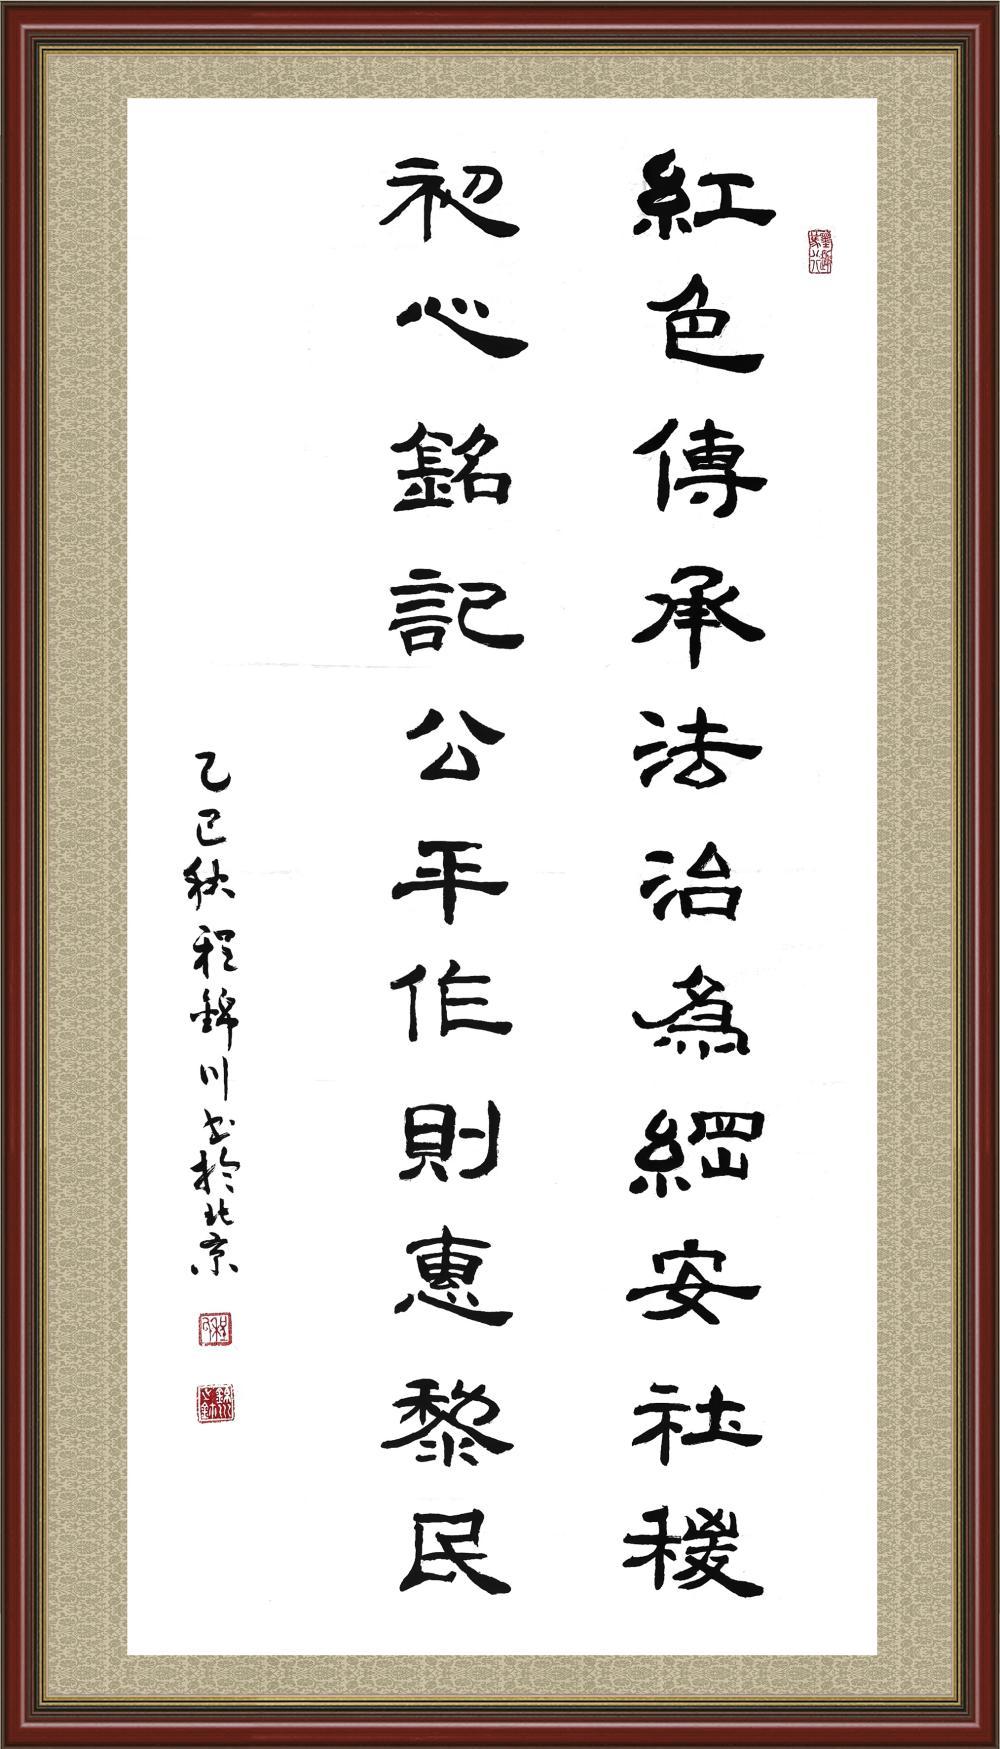 紅色傳承法治為綱安社稷
初心銘記公平作則惠黎民
乙巳秋程錦川书於北京